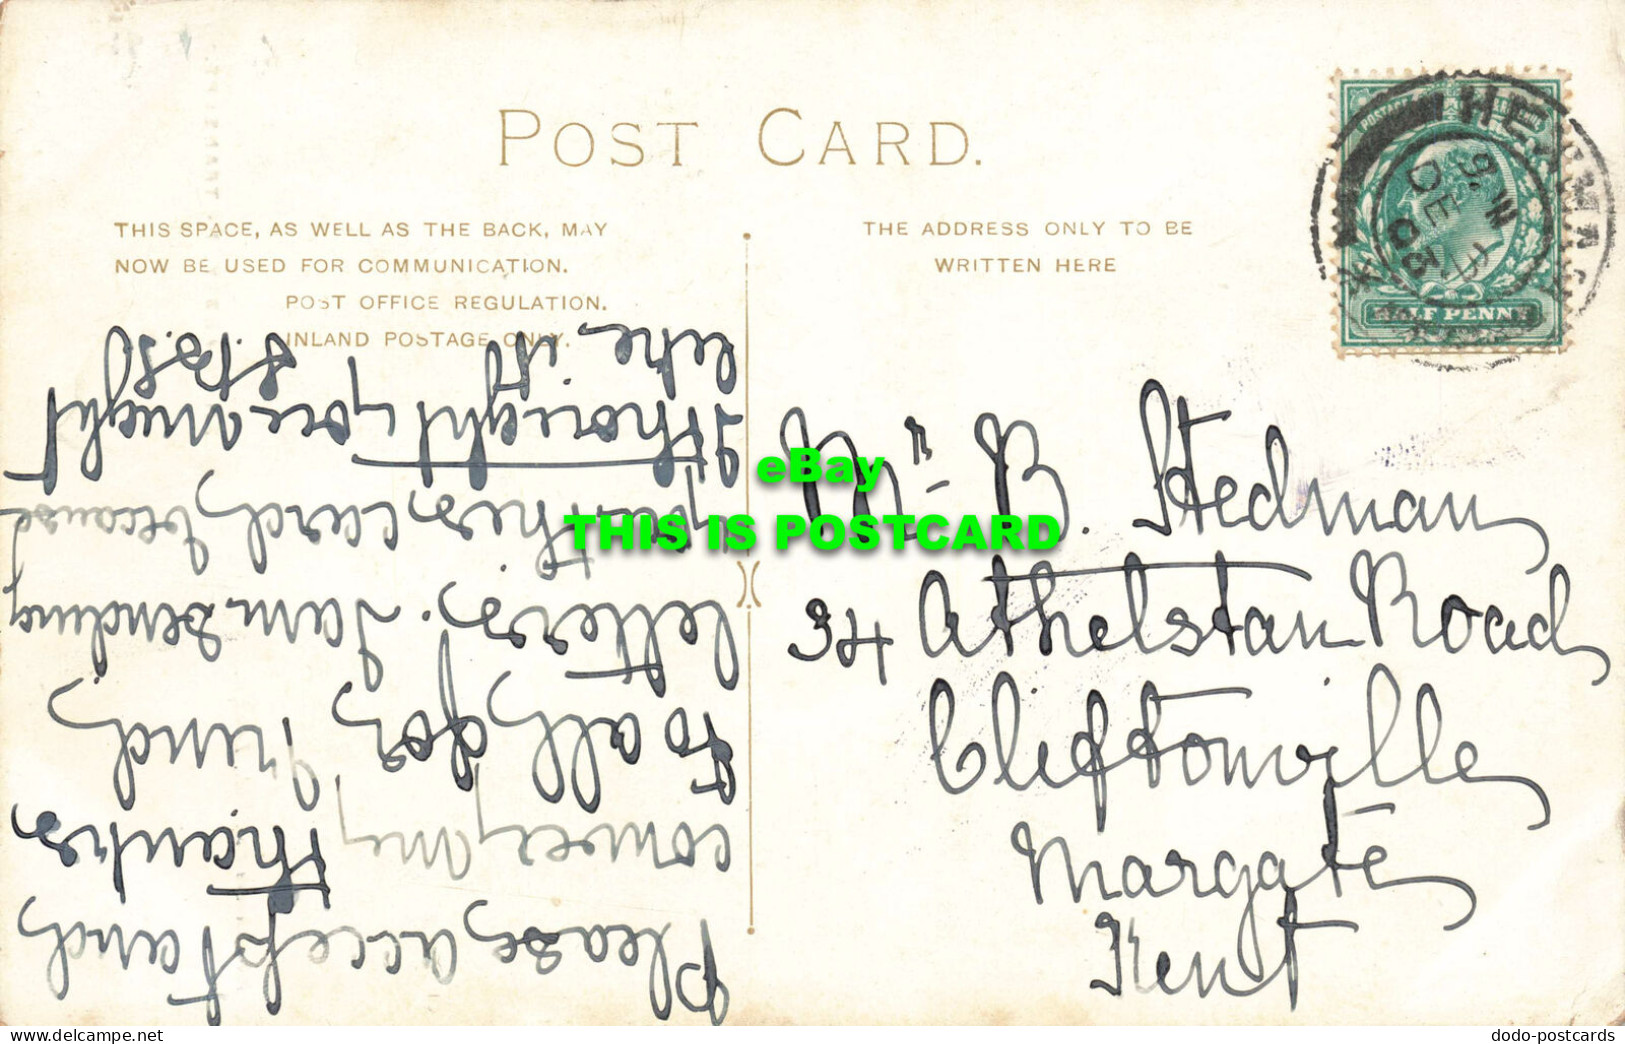 POST CARD.
THIS SPACE, AS WELL AS THE BACK, MAY
NOW BE USED FOR COMMUNICATION.
POST OFFICE REGULATION.
INLAND POSTAGE ONLY.
THE ADDRESS ONLY TO BE
WRITTEN HERE
HALF PENNY
9. M
DE 9
03
Please accept and
convey my thanks
to all for kind
letters. I am sending
you this card, because
I thought you might
like it. S.B.S.
Mr. B. Stedman
34 Athelstan Road
Cliftonville
Margate
Kent
eBay
THIS IS POSTCARD
www.delcampe.net
dodo-postcards